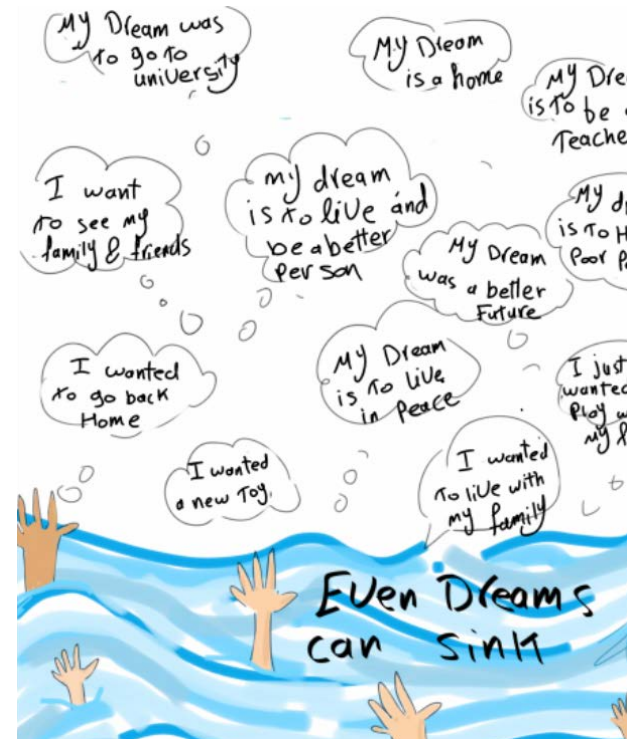 My Dream was
to go to
university
My Dream
is a home
My Dre
is To be
Teache
I want
to see my
family & friends
my dream
is to live and
be a better
person
My Dream
was a better
Future
My d
is To H
Poor P
I wanted
to go back
Home
My Dream
is To live
in Peace
I just
wanted
Play w
my f
I wanted
a new Toy.
I wanted
To live with
my family
Even Dreams
can sink